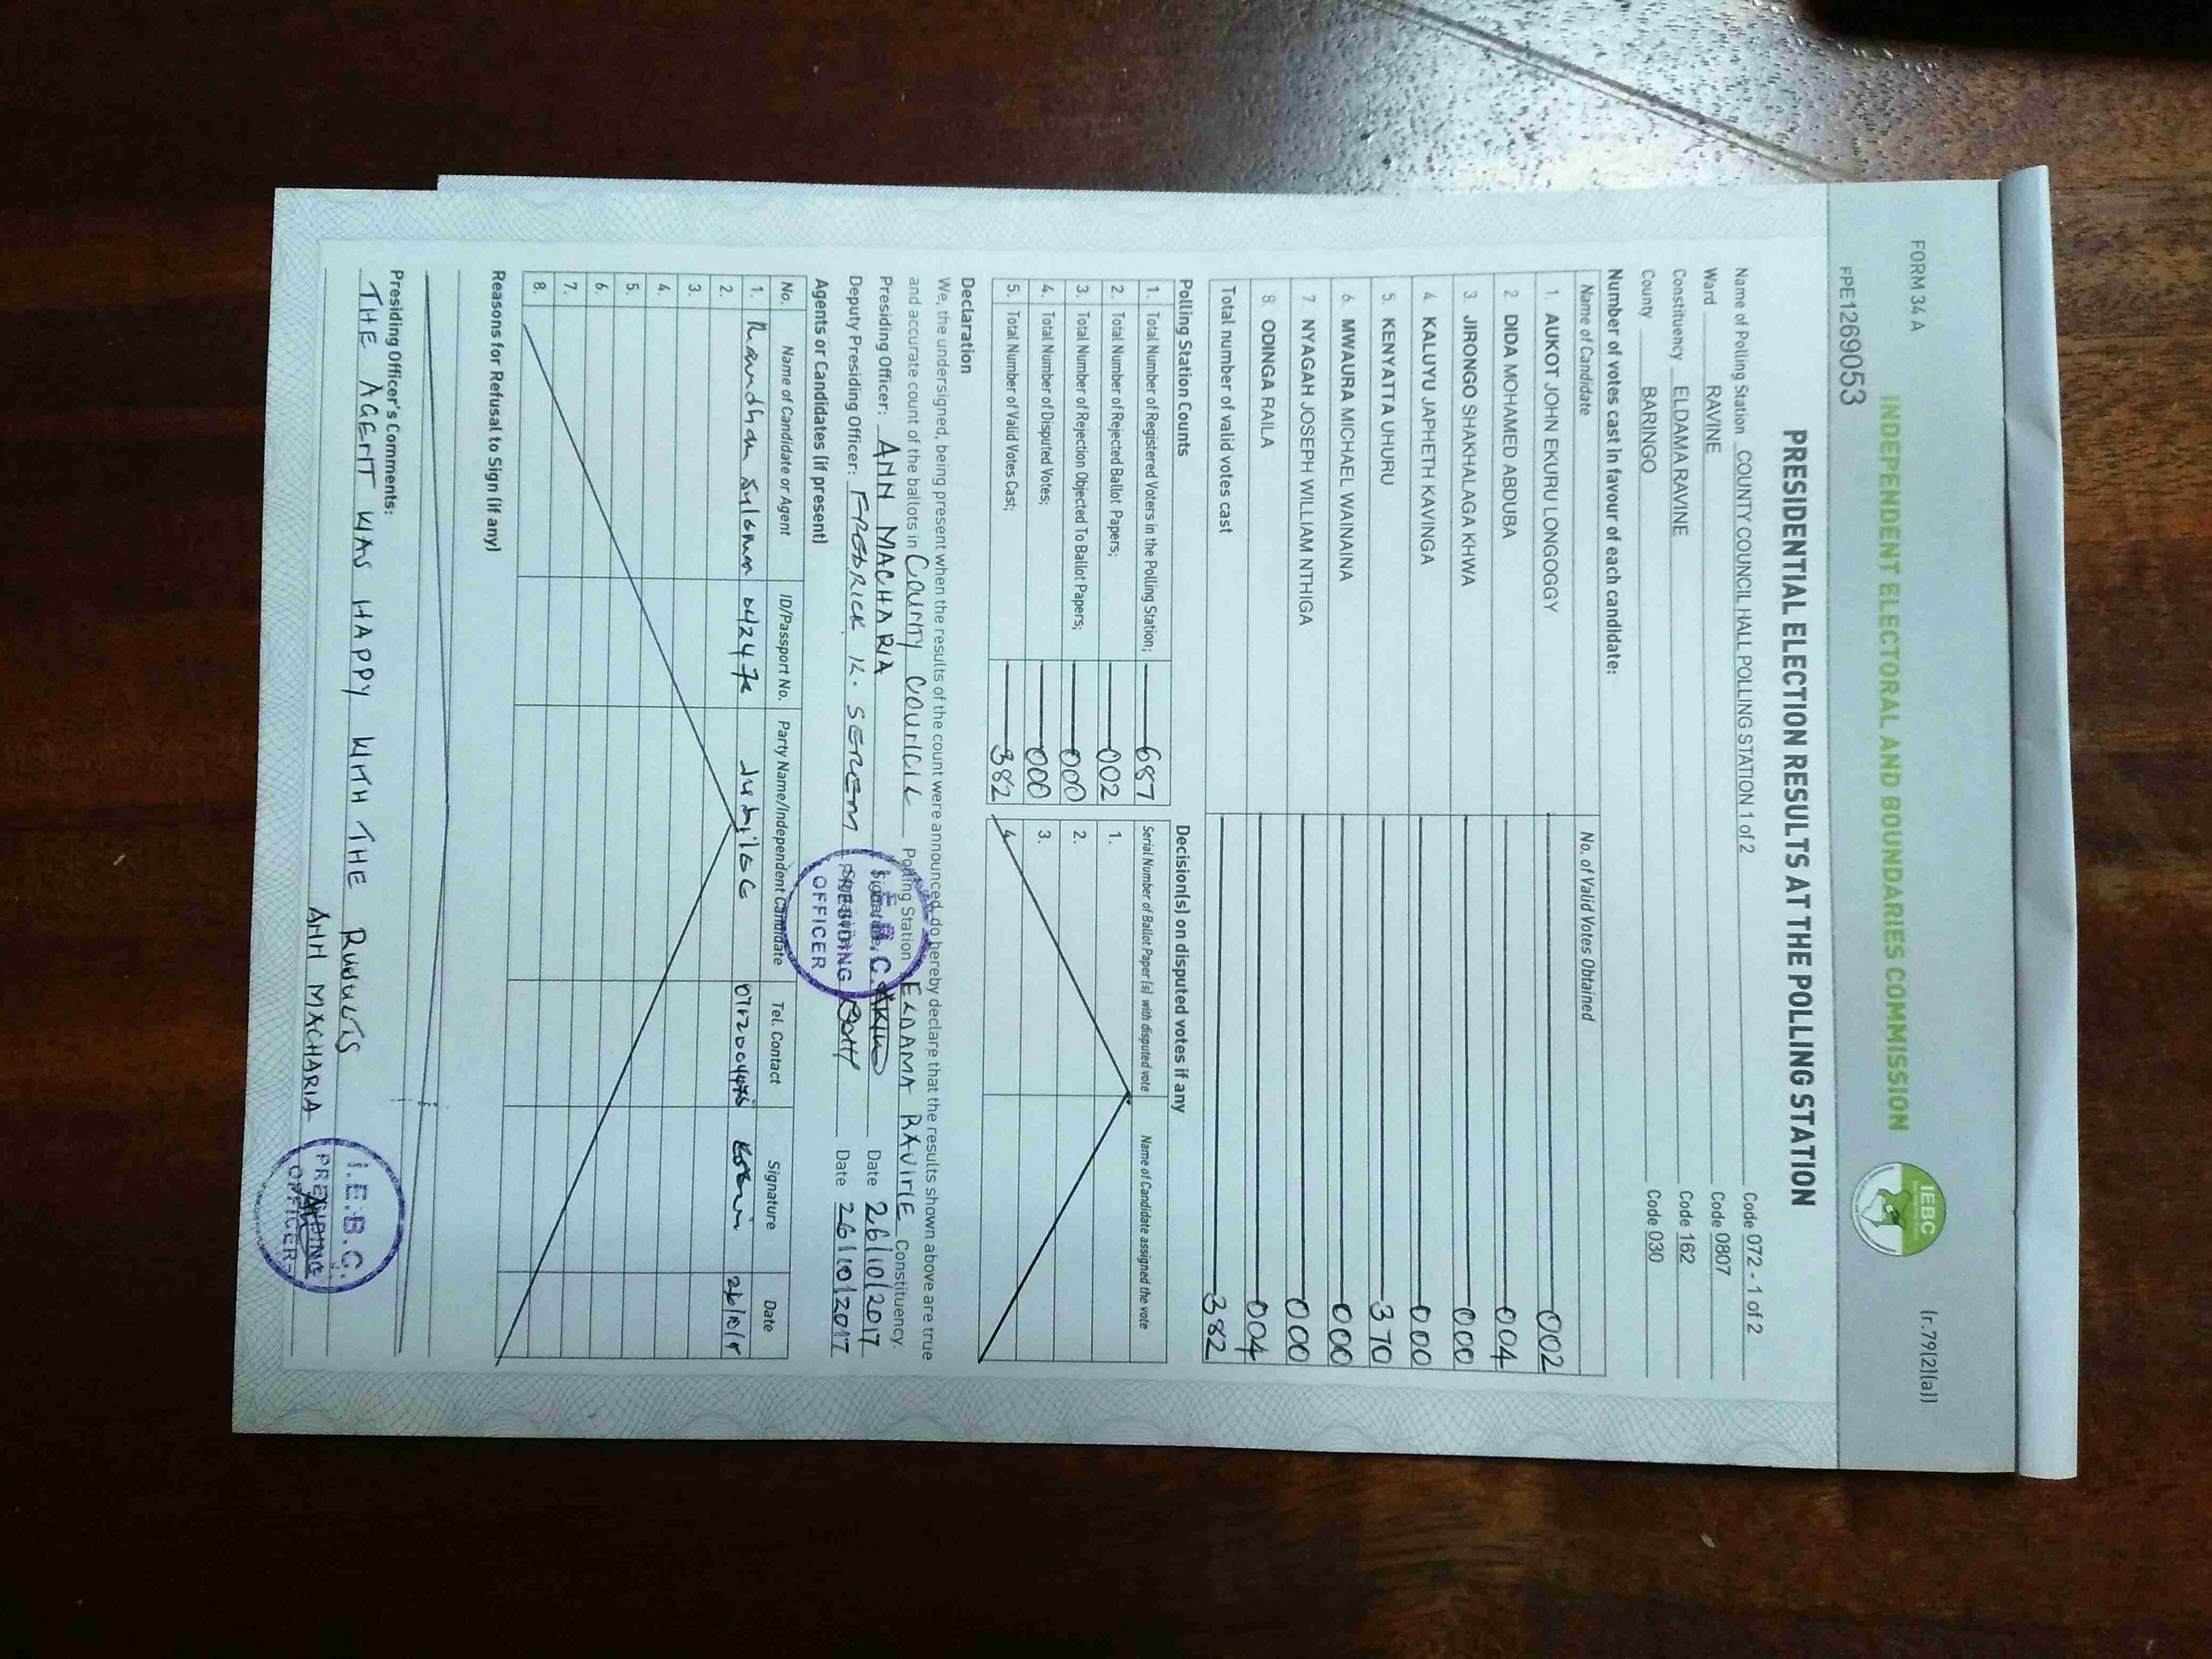 FORM 34 A (r.79(2)(a))
INDEPENDENT ELECTORAL AND BOUNDARIES COMMISSION
IEBC
FPE1269053
PRESIDENTIAL ELECTION RESULTS AT THE POLLING STATION
Name of Polling Station COUNTY COUNCIL HALL POLLING STATION 1 of 2 Code 072 - 1 of 2
Ward RAVINE Code 0807
Constituency ELDAMA RAVINE Code 162
County BARINGO Code 030
Number of votes cast in favour of each candidate:
Name of Candidate No. of Valid Votes Obtained
1. AUKOT JOHN EKURU LONGOGGY 002
2 DIDA MOHAMED ABDUBA 004
3. JIRONGO SHAKHALAGA KHWA 000
4. KALUYU JAPHETH KAVINGA 000
5. KENYATTA UHURU 370
6. MWAURA MICHAEL WAINAINA 000
7 NYAGAH JOSEPH WILLIAM NTHIGA 000
8. ODINGA RAILA 004
Total number of valid votes cast 382
Polling Station Counts Decision(s) on disputed votes if any
Serial Number of Ballot Paper (s) with disputed vote Name of Candidate assigned the vote
1. Total Number of Registered Voters in the Polling Station; 687
2. Total Number of Rejected Ballot Papers; 002 1.
3. Total Number of Rejection Objected To Ballot Papers; 000 2.
4. Total Number of Disputed Votes; 000 3.
5. Total Number of Valid Votes Cast; 382 4.
Declaration
We, the undersigned, being present when the results of the count were announced, do hereby declare that the results shown above are true
and accurate count of the ballots in COUNTY COUNCIL Polling Station ELDAMA RAVINE Constituency.
Presiding Officer: ANN MACHARIA Signature: Date 26/10/2017
Deputy Presiding Officer: FREDRICK K. SEREM Date 26/10/2017
PRESIDING
OFFICER
Agents or Candidates (if present)
No. Name of Candidate or Agent ID/Passport No. Party Name/Independent Candidate Tel. Contact Signature Date
1. Solomon Jubilee
2.
3.
4.
5.
6.
7.
8.
Reasons for Refusal to Sign (if any)
Presiding Officer's Comments:
THE AGENT WAS HAPPY WITH THE RESULTS
ANN MACHARIA
I.E.B.C.
PRESIDING
OFFICER